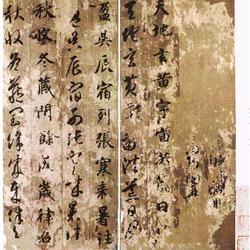 天地玄黄宇宙洪荒日月
天地玄黄宇宙洪荒日月
盈昃辰宿列張寒来暑往
盈昃辰宿列張寒来暑往
秋收冬藏閏餘成歲律吕
秋收冬藏閏餘成歲律吕